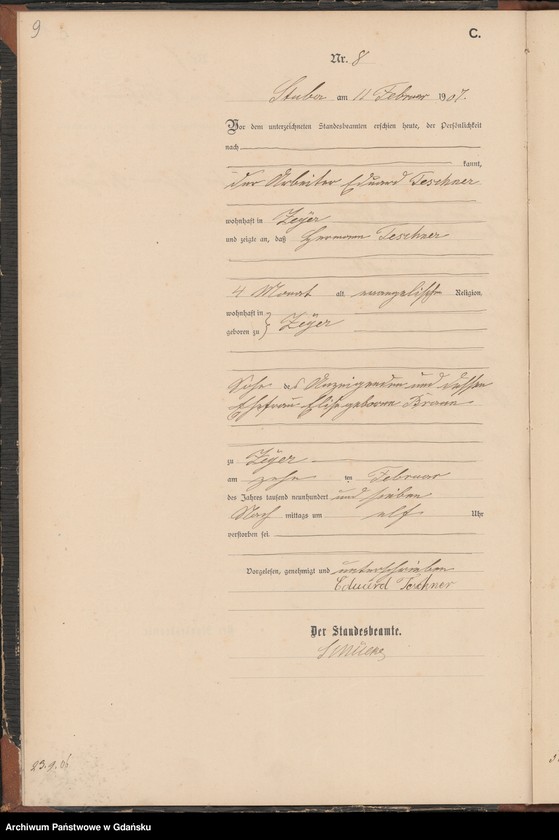 9
C.
Nr. 8
Stuba am 11 Februar 1907.
Vor dem unterzeichneten Standesbeamten erschien heute, der Persönlichkeit
nach
kannt,
der Arbeiter Eduard Teschner
wohnhaft in Zeyer
und zeigte an, daß Hermann Teschner
4 Monat alt, evangelischer Religion,
wohnhaft in
geboren zu } Zeyer
Sohn des Anzeigenden und dessen
Ehefrau Elise geborene Braun
zu Zeyer
am zehn ten Februar
des Jahres tausend neunhundert und sieben
Nach mittags um elf Uhr
verstorben sei.
Vorgelesen, genehmigt und unterschrieben
Eduard Teschner
Der Standesbeamte.
23.9.06
Archiwum Państwowe w Gdańsku